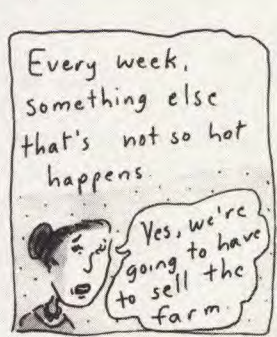 Every week,
something else
that's not so hot
happens.
Yes, we're
going to have
to sell the
farm.